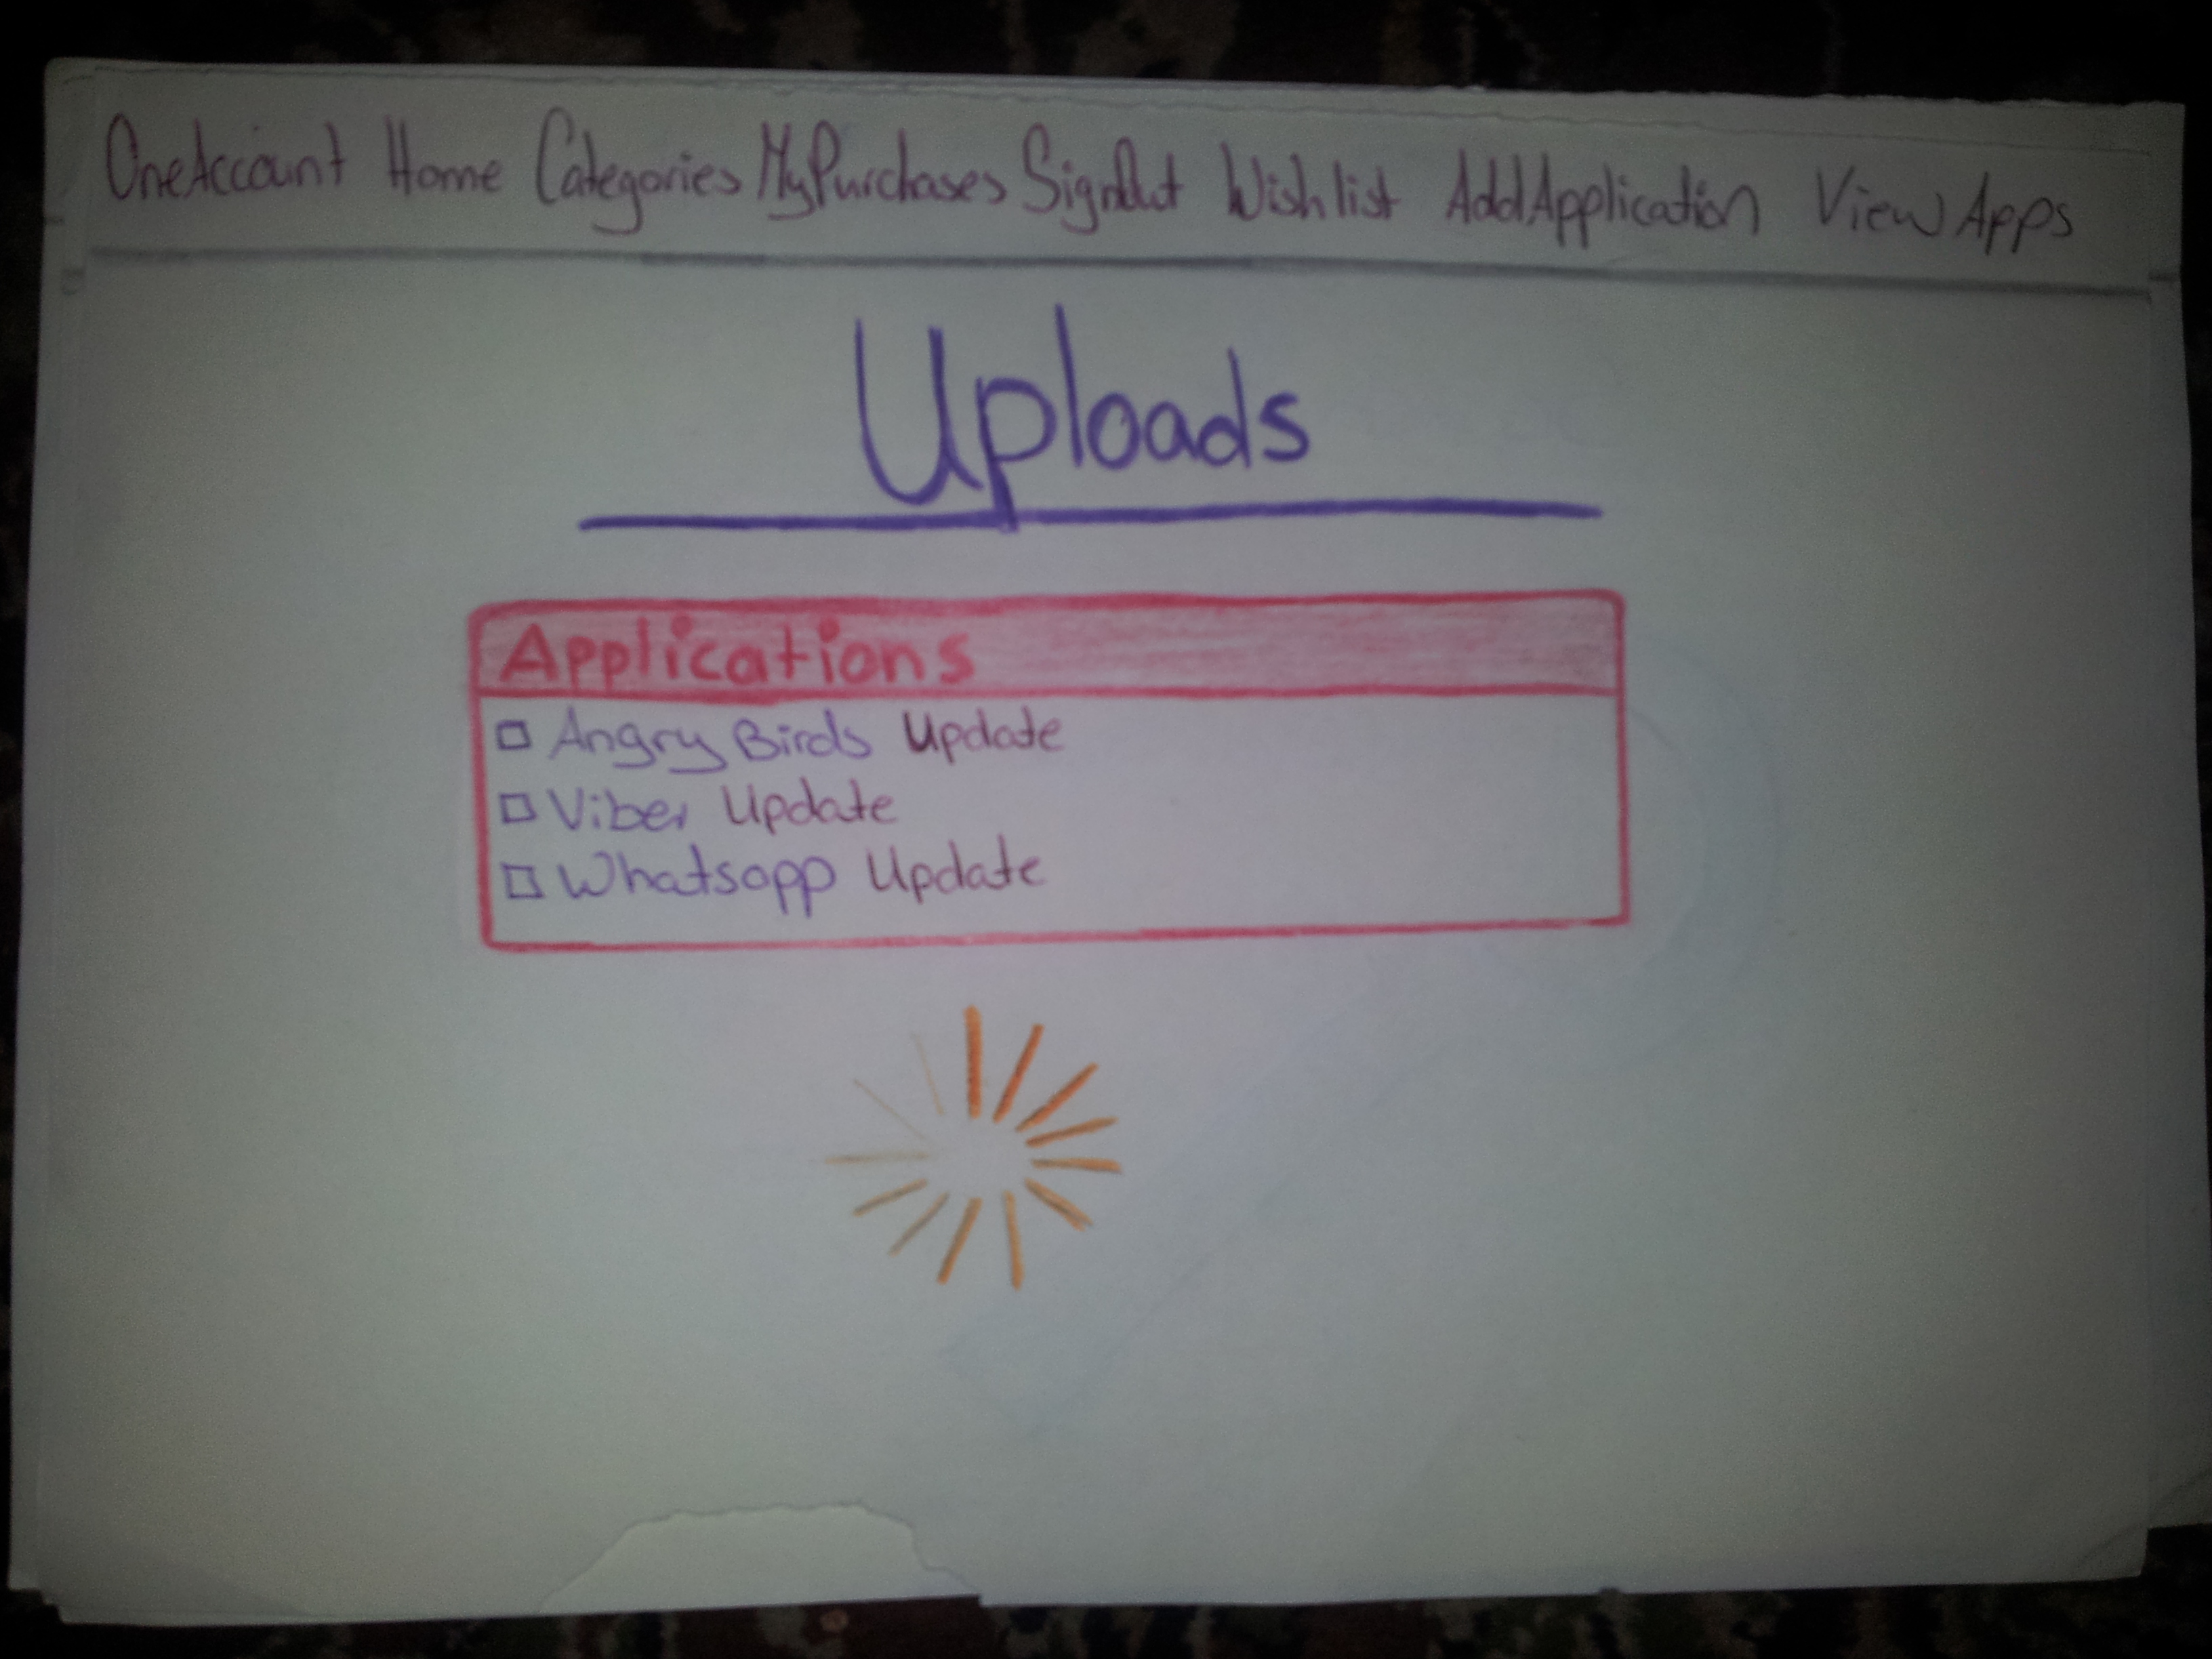 OneAccount Home Categories MyPurchases SignOut Wishlist AddApplication View Apps
Uploads
Applications
Angry Birds Update
Viber Update
Whatsapp Update